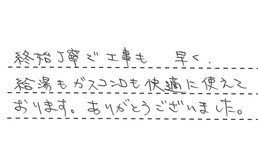 終始丁寧で工事も 早く、
給湯もガスコンロも快適に使えて
おります。ありがとうございました。